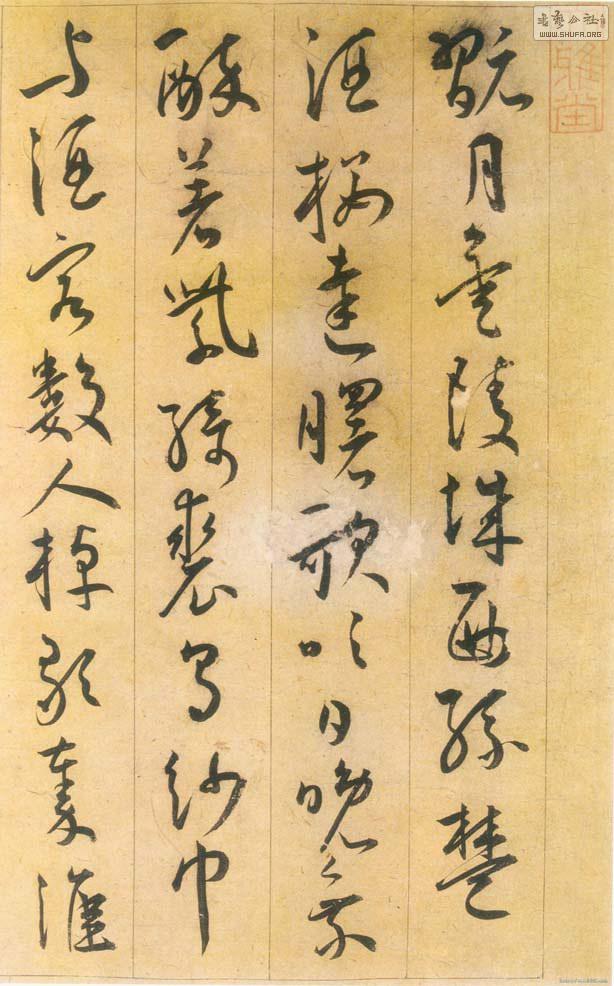 翫月金陵城西孫楚
酒樓達曙歌吹日晚乘
醉著紫綺裘烏紗巾
与酒客數人棹歌秦淮
書藝公社
WWW.SHUFA.ORG